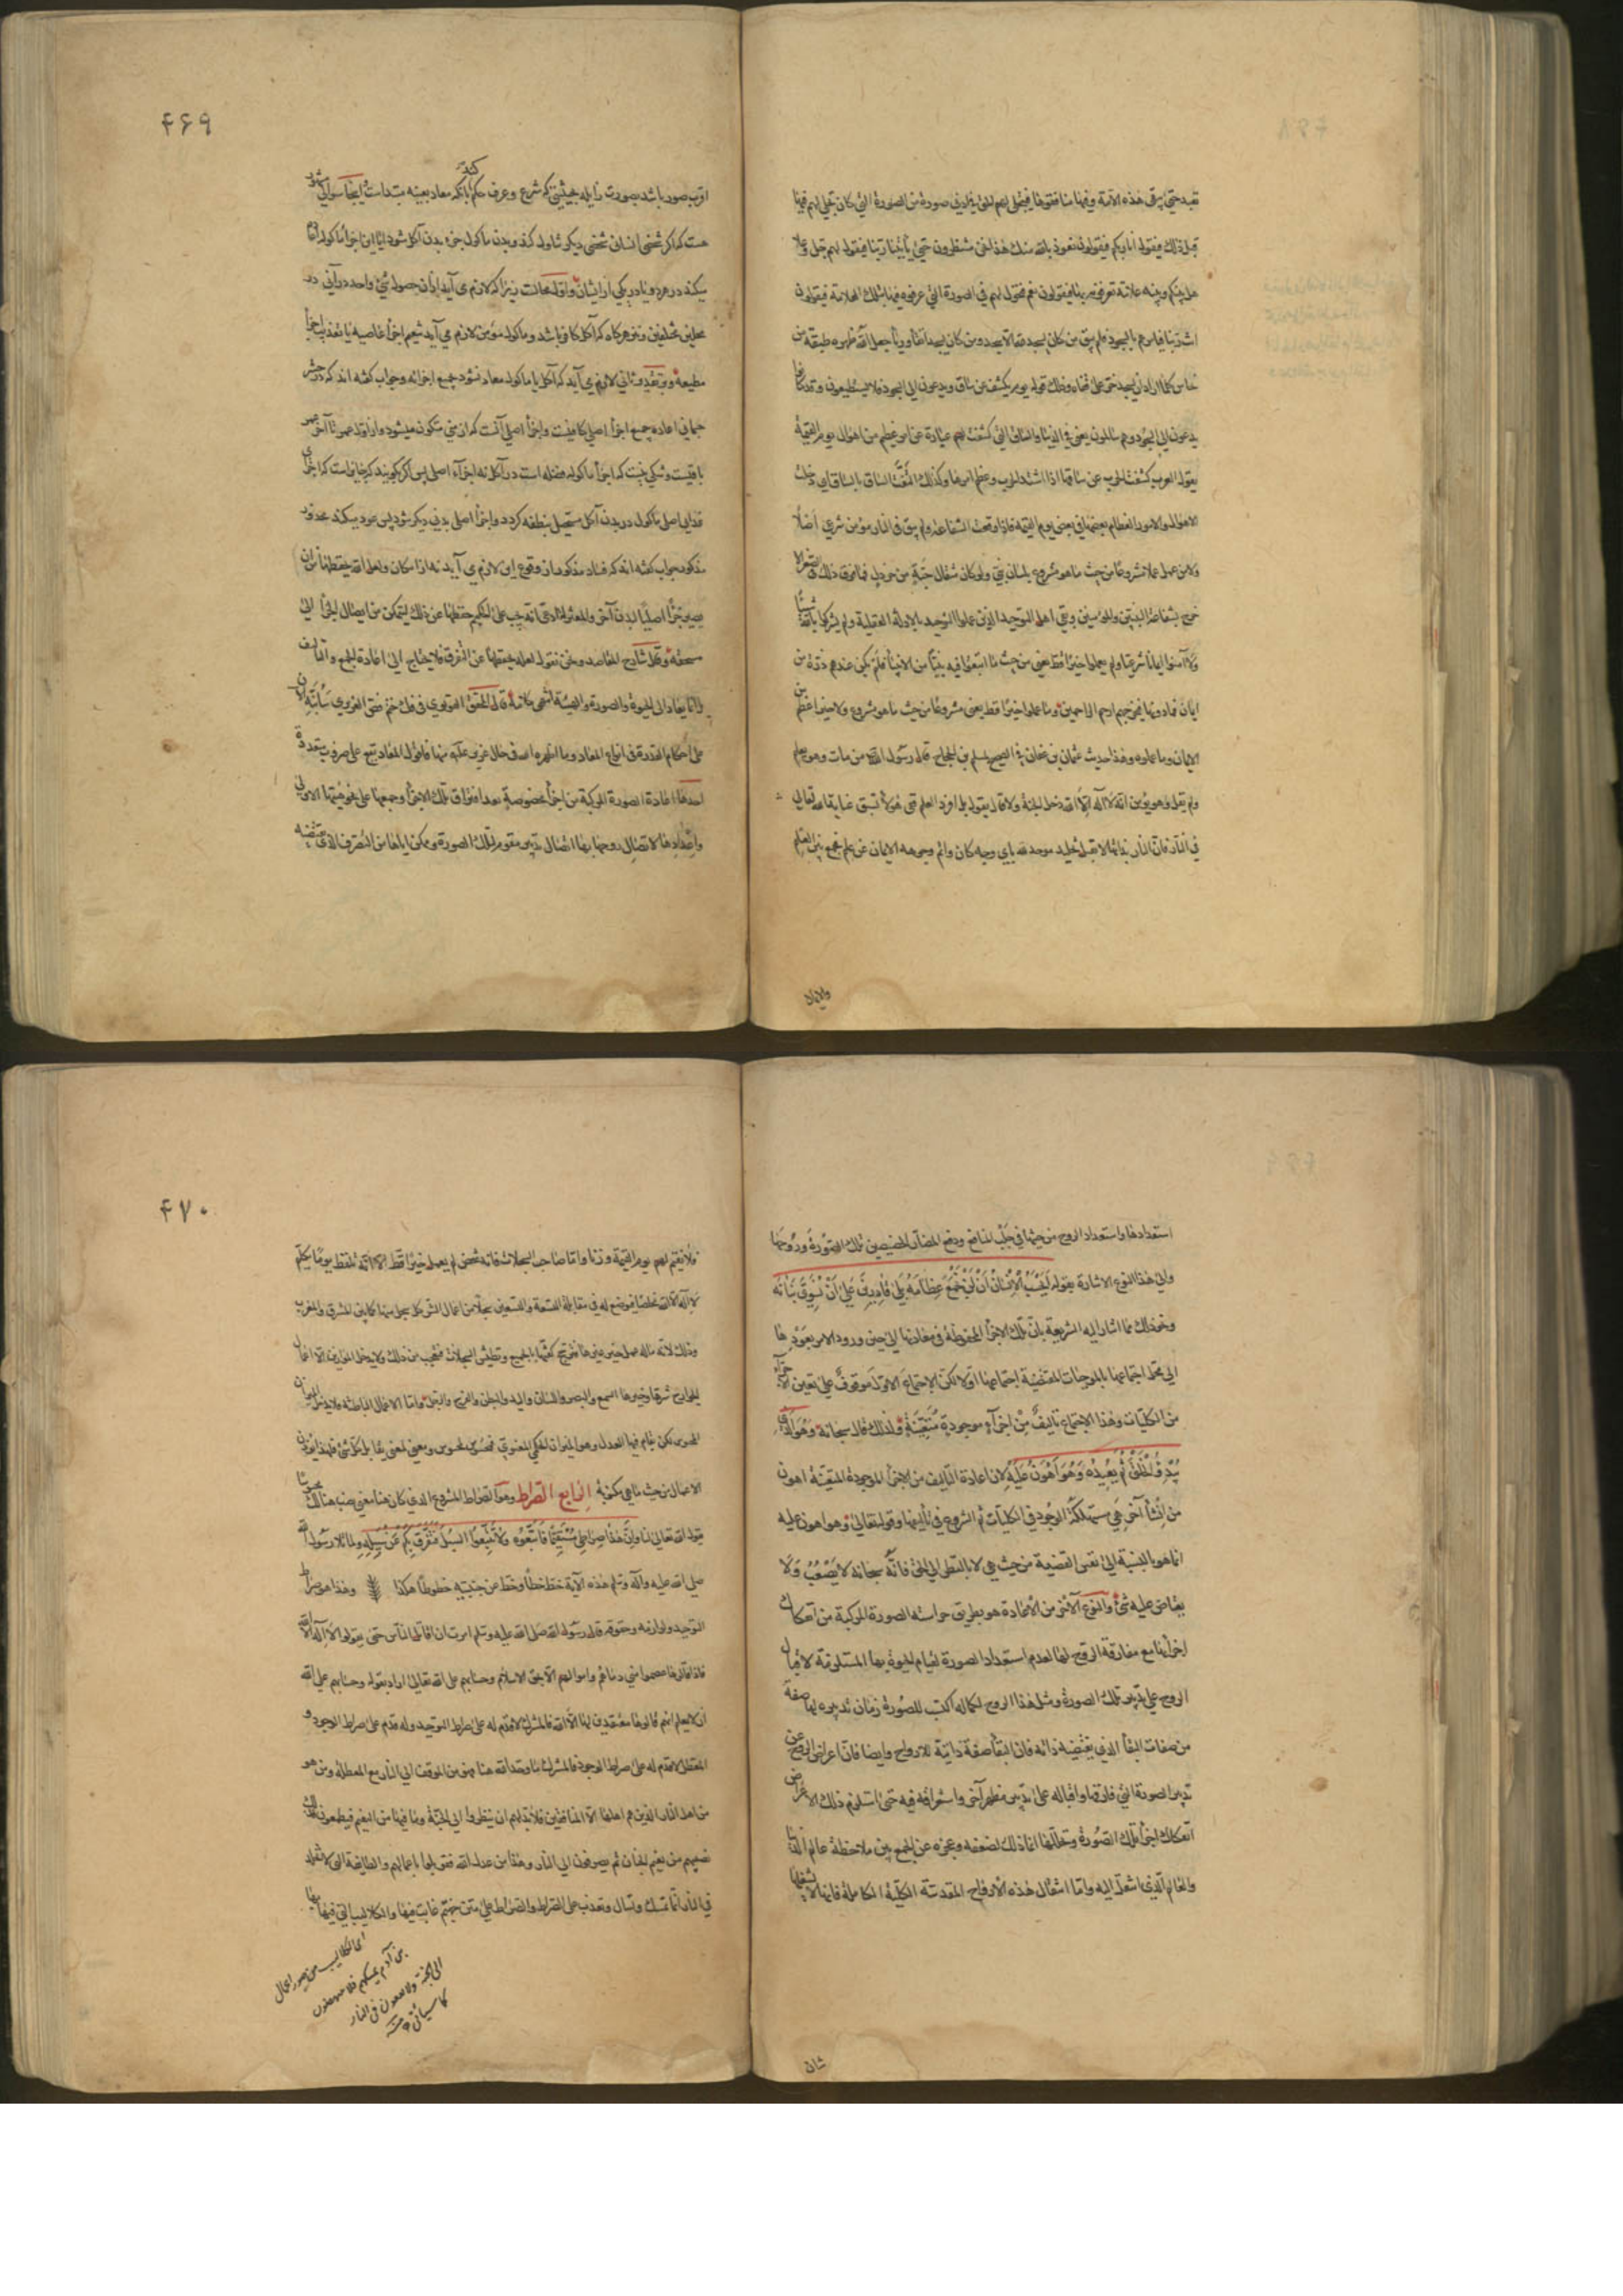 تعبد حتى تبقى هذه الأمة وفيها منافقوها فيتجلى لهم الحق في أدنى صورة من الصورة التي كان تجلى لهم فيها
قبل ذلك فيقول أنا ربكم فيقولون نعوذ بالله منك هذا نحن منتظرون حتى يأتينا ربنا فيقول لهم جل وعلا
هل بينكم وبينه علامة تعرفونه بها فيقولون نعم فيتحول لهم في الصورة التي عرفوه فيها بتلك العلامة فيقولون
أنت ربنا فيأمرهم بالسجود فلم يبق من كان يسجد لله الا يسجد ومن كان يسجد اتقاء ورياء جعل الله ظهره طبقة من
نحاس كلما اراد ان يسجد خر على قفاه وذلك قوله يوم يكشف عن ساق ويدعون الى السجود فلا يستطيعون وقد كانوا
يدعون الى السجود وهم سالمون يعني في الدنيا والساق التي كشفت لهم عبارة عن امر عظيم من اهوال يوم القيمة
يقول العرب كشفت الحرب عن ساقها اذا اشتد الحرب وعظم امرها وكذلك التفت الساق بالساق اى دخلت
الاهوال والامور العظام بعضها في بعض يوم القيمة فاذا وقعت الشفاعة ولم يبق في النار مؤمن شرعي اصلا
ولا من عمل عملا مشروعا من حيث ما هو مشروع بلسان نبي ولو كان مثقال حبة من خردل فما فوق ذلك في الصغر الا
خرج بشفاعة النبيين والمؤمنين وبقي اهل التوحيد الذين علموا التوحيد بالادلة العقلية ولم يشركوا بالله شيئا
ولا آمنوا ايمانا شرعيا ولم يعملوا خيرا قط يعني من حيث ما اتبعوا فيه نبيا من الانبياء فلم يكن عندهم ذرة من
ايمان فما دونها فيخرجهم ارحم الراحمين وما عملوا خيرا قط يعني مشروعا من حيث ما هو مشروع ولا خير اعظم من
الايمان وما عملوه وهذا حديث عثمان بن عفان في الصحيح لمسلم بن الحجاج قال رسول الله من مات وهو يعلم
ولم يقل وهو يؤمن انه لا اله الا الله دخل الجنة ولا قال يقول بل افرد العلم ففي هؤلاء تسبق عناية الله تعالى
في النار فان النار بذاتها لا تقبل تخليد موحد لله باي وجه كان واتم وجوهه الايمان عن علم فجمع بين العلم
والايمان
۴۶۹
اقرب صور باشد بصورت زايله بحيثيتى كه شرع وعرف حكم كنند بآنكه معاد بعينه مبتداست واينجا سوالى مشهور
هست كه اگر شخصى انسان شخصى ديگر تناول كند وبدن ماكول جزء بدن آكل شود آيا اين اجزا ماكول
ميكند در هر دو يا در يكى از ايشان واول محالست زيرا كه لازم مى آيد ازان حصول شيء واحد در آنى در
محلين مختلفين ونيز هرگاه كه آكل كافر باشد وماكول مؤمن لازم مى آيد تنعيم اجزا عاصيه يا تعذيب اجزا
مطيعه وبر تقدير ثانى لازم مى آيد كه آكل يا ماكول معاد نشود بجميع اجزائه وجواب گفته اند كه در حشر
جمانى اعاده جميع اجزاء اصلى كافيست واجزاء اصلى آنست كه از منى متكون ميشود واز اول عمر تا آخر عمر
باقيست وشكى نيست كه اجزاء ماكول فضله است در آكل نه اجزاء اصلى پس اگر گويند كه جايز است كه اجزاى
غذايى اصلى ماكول در بدن آكل مستحيل بنطفه گردد واجزاء اصلى بدنى ديگر شود پس عود ميكند محذور
مذكور جواب گفته اند كه فساد مذكور از وقوع اين لازم مى آيد نه از امكان ولعل الله يحفظها من ان
يصير جزءا اصليا لبدن آخر والمعتزلة ادعى انه يجب على الحكيم حفظها عن ذلك ليتمكن من ايصال الجزاء الى
مستحقه وقال شارح المقاصد ونحن نقول لعله يحفظها عن التفرق فلا يحتاج الى اعادة الجمع والتاليف
وانما يعاد الى الحيوة والصورة والهيئة انتهى كلامه قال المحقق القونوي في فك ختم فص العزيري سانبه الان
على احكام القدرة في انواع المعاد وما اظهره الله في حال عزير عليه منها فاقول المعاد يقع على ضروب متعددة
احدها اعادة الصورة المركبة من اجزاء مخصوصة بعد افتراق تلك الاجزاء وجمعها على نحو هيئتها الاولى
واعدادها لاتصال روحها بها اتصال تدبير مقوم لتلك الصورة وممكن اياها من التصرف الذى تقتضيه
استعدادها واستعداد الروح من حيثها في جلب المنافع ودفع المضار الخصيصين بتلك الصورة وروحها
والى هذا النوع الاشارة بقوله أيحسب الانسان أن لن نجمع عظامه بلى قادرين على أن نسوى بنانه
ونحو ذلك مما اشار اليه الشريعة بان تلك الاجزاء محفوظة في معادنها الى حين ورود الامر بعودها
الى محل اجتماعها بالموجبات المقتضية اجتماعها اولا لكن الاجتماع الاول موقوف على تعين الاجزاء
من الكليات وهذا الاجتماع تاليف من اجزاء موجودة متعينة ولذلك قال سبحانه وهو الذى
يبدؤ الخلق ثم يعيده وهو اهون عليه لان اعادة التاليف من الاجزاء الموجودة المتعينة اهون
من انشاء آخر هي مستهلكة الوجود في الكليات ثم الشروع في تاليفها وقوله تعالى وهو اهون عليه
انما هو بالنسبة الى نفس القضية من حيث هي لا بالنظر الى الحق فانه سبحانه لا يصعب ولا
يعتاض عليه شئ والنوع الآخر من الاعادة هو بطريق حراسة الصورة المركبة من انفكاك
اجزائها مع مفارقة الروح لها لعدم استعداد الصورة لقيام الحيوة بها المستلزمة لاقبال
الروح على تدبير تلك الصورة ومثل هذا الروح لكماله اكسب للصورة زمان تدبيره لها صفة
من صفات البقاء الذى يقتضيه ذاته فان البقاء صفة ذاتية للارواح وايضا فان اعراض الروح عن
تدبير الصورة التي فارقها واقباله على تدبير مظهر آخر واستغراقه فيه حتى استلزم ذلك الاعراض
انفكاك اجزاء تلك الصورة وتحللها انما ذلك لضعفه وعجزه عن الجمع بين ملاحظة عالم الدنيا
والعالم الذى انتقل اليه واما انتقال هذه الارواح المقدسة الكلية الكاملة فانها لا يشغلها
شان
۴۷۰
فلا نقيم لهم يوم القيمة وزنا واما صاحب السجلات فانه شخص لم يعمل خيرا قط الا انه تلفظ يوما بكلمة
لا اله الا الله مخلصا فيوضع له في مقابلة التسعة والتسعين سجلا من اعمال الشر كل سجل منها كما بين المشرق والمغرب
وذلك لانه ماله عمل خير غيرها فترجح كفتها بالجميع وتطيش السجلات فيتعجب من ذلك ولا يدخل الموازين الا اعمال
الجوارح شرها وخيرها السمع والبصر واللسان واليد والبطن والفرج والرجل واما الاعمال الباطنة فلا يدخل الميزان
المحسوس لكن يقام فيها العدل وهو الميزان الحكمي المعنوي فمحسوس لمحسوس ومعنى لمعنى يقابل كل شئ بمثله فلهذا يوزن
الاعمال من حيث ما هي مكتوبة الرابع الصراط وهو الصراط المشروع الذى كان هنا معنى ينصب هنالك محسوسا
يقول الله تعالى لنا وان هذا صراطى مستقيما فاتبعوه ولا تتبعوا السبل فتفرق بكم عن سبيله ولما تلا رسول الله
صلى الله عليه وآله وسلم هذه الآية خط خطا وخط عن جنبتيه خطوطا هكذا وهذا هو صراط
التوحيد ولوازمه وحقوقه قال رسول الله صلى الله عليه وسلم امرت ان اقاتل الناس حتى يقولوا لا اله الا الله
فاذا قالوها عصموا مني دماءهم واموالهم الا بحق الاسلام وحسابهم على الله تعالى اراد بقوله وحسابهم على الله
انه لا يعلم انهم قالوها معتقدين لها الا الله فالمشرك لا قدم له على صراط التوحيد وله قدم على صراط الوجود و
المعطل لا قدم له على صراط الوجود فالمشرك ما وحد الله هنا فهو من الموقف الى النار مع المعطلة ومن هو
من اهل النار الذين هم اهلها الا المنافقين فلا بد لهم ان ينظروا الى الجنة وما فيها من النعيم فيطمعون فذلك
نصيبهم من نعيم الجنان ثم يصرفون الى النار وهذا من عدل الله فقوبلوا باعمالهم والطايفة التي لا تخلد
في النار انما تمسك وتسال وتعذب على الصراط والصراط على متن جهنم غايب فيها والكلاليب التي فيها بها
اى الكلاليب من صور اعمال
بنى آدم تمسكهم فلا ينهضون
الى الجنة ولا يقعون في النار
كما سيأتى منه